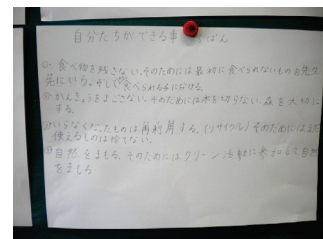 自分たちができる事 ばん
①食べ物を残さない。そのためには最初に食べられないものを先生
に行う。そして食べられる子にあげる。
②かんきょうをよごさない。そのためには木を切らない。森を大切に
する。
③いらなくなったものは再利用する。(リサイクル)そのためにはまだ
使えるものは捨てない。
④自然をまもる。そのためにはクリーン活動に参加して自然
をまもる